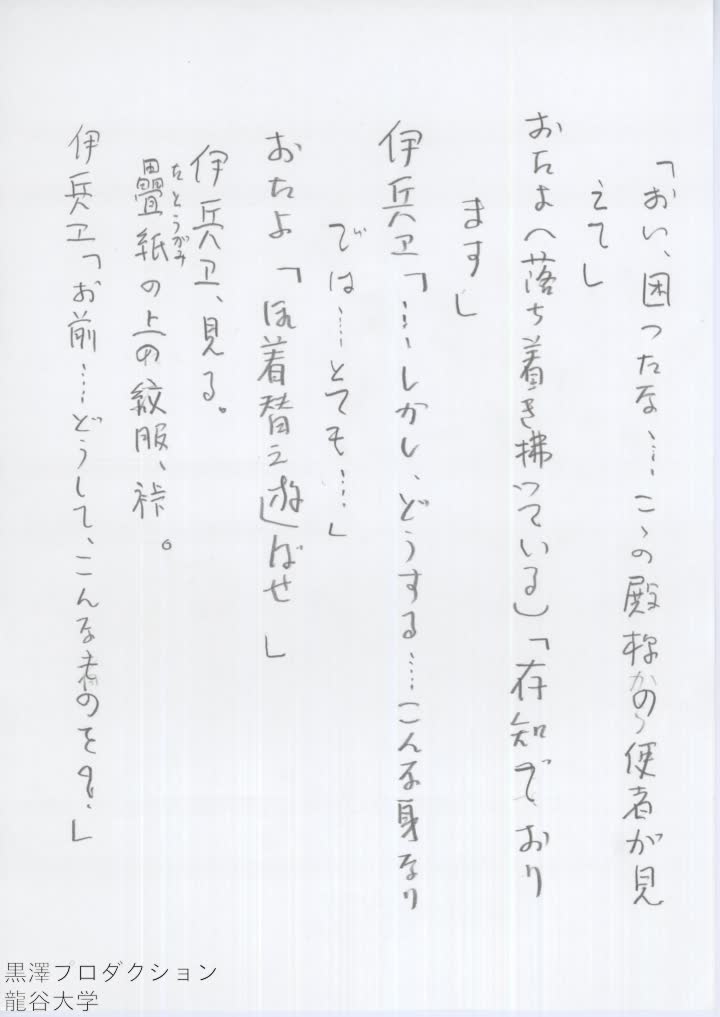 「おい、困ったな……こゝの殿様からの使者が見
えて」
おたよ(落ち着き拂っている)「存知ております」
伊兵ヱ「……しかし、どうする……こんな身なり
では……とても……」
おたよ「お着替え遊ばせ」
伊兵ヱ、見る。
疊紙の上の紋服、裃。
たとうがみ
伊兵ヱ「お前……どうして、こんなものを?」
黒澤プロダクション
龍谷大学